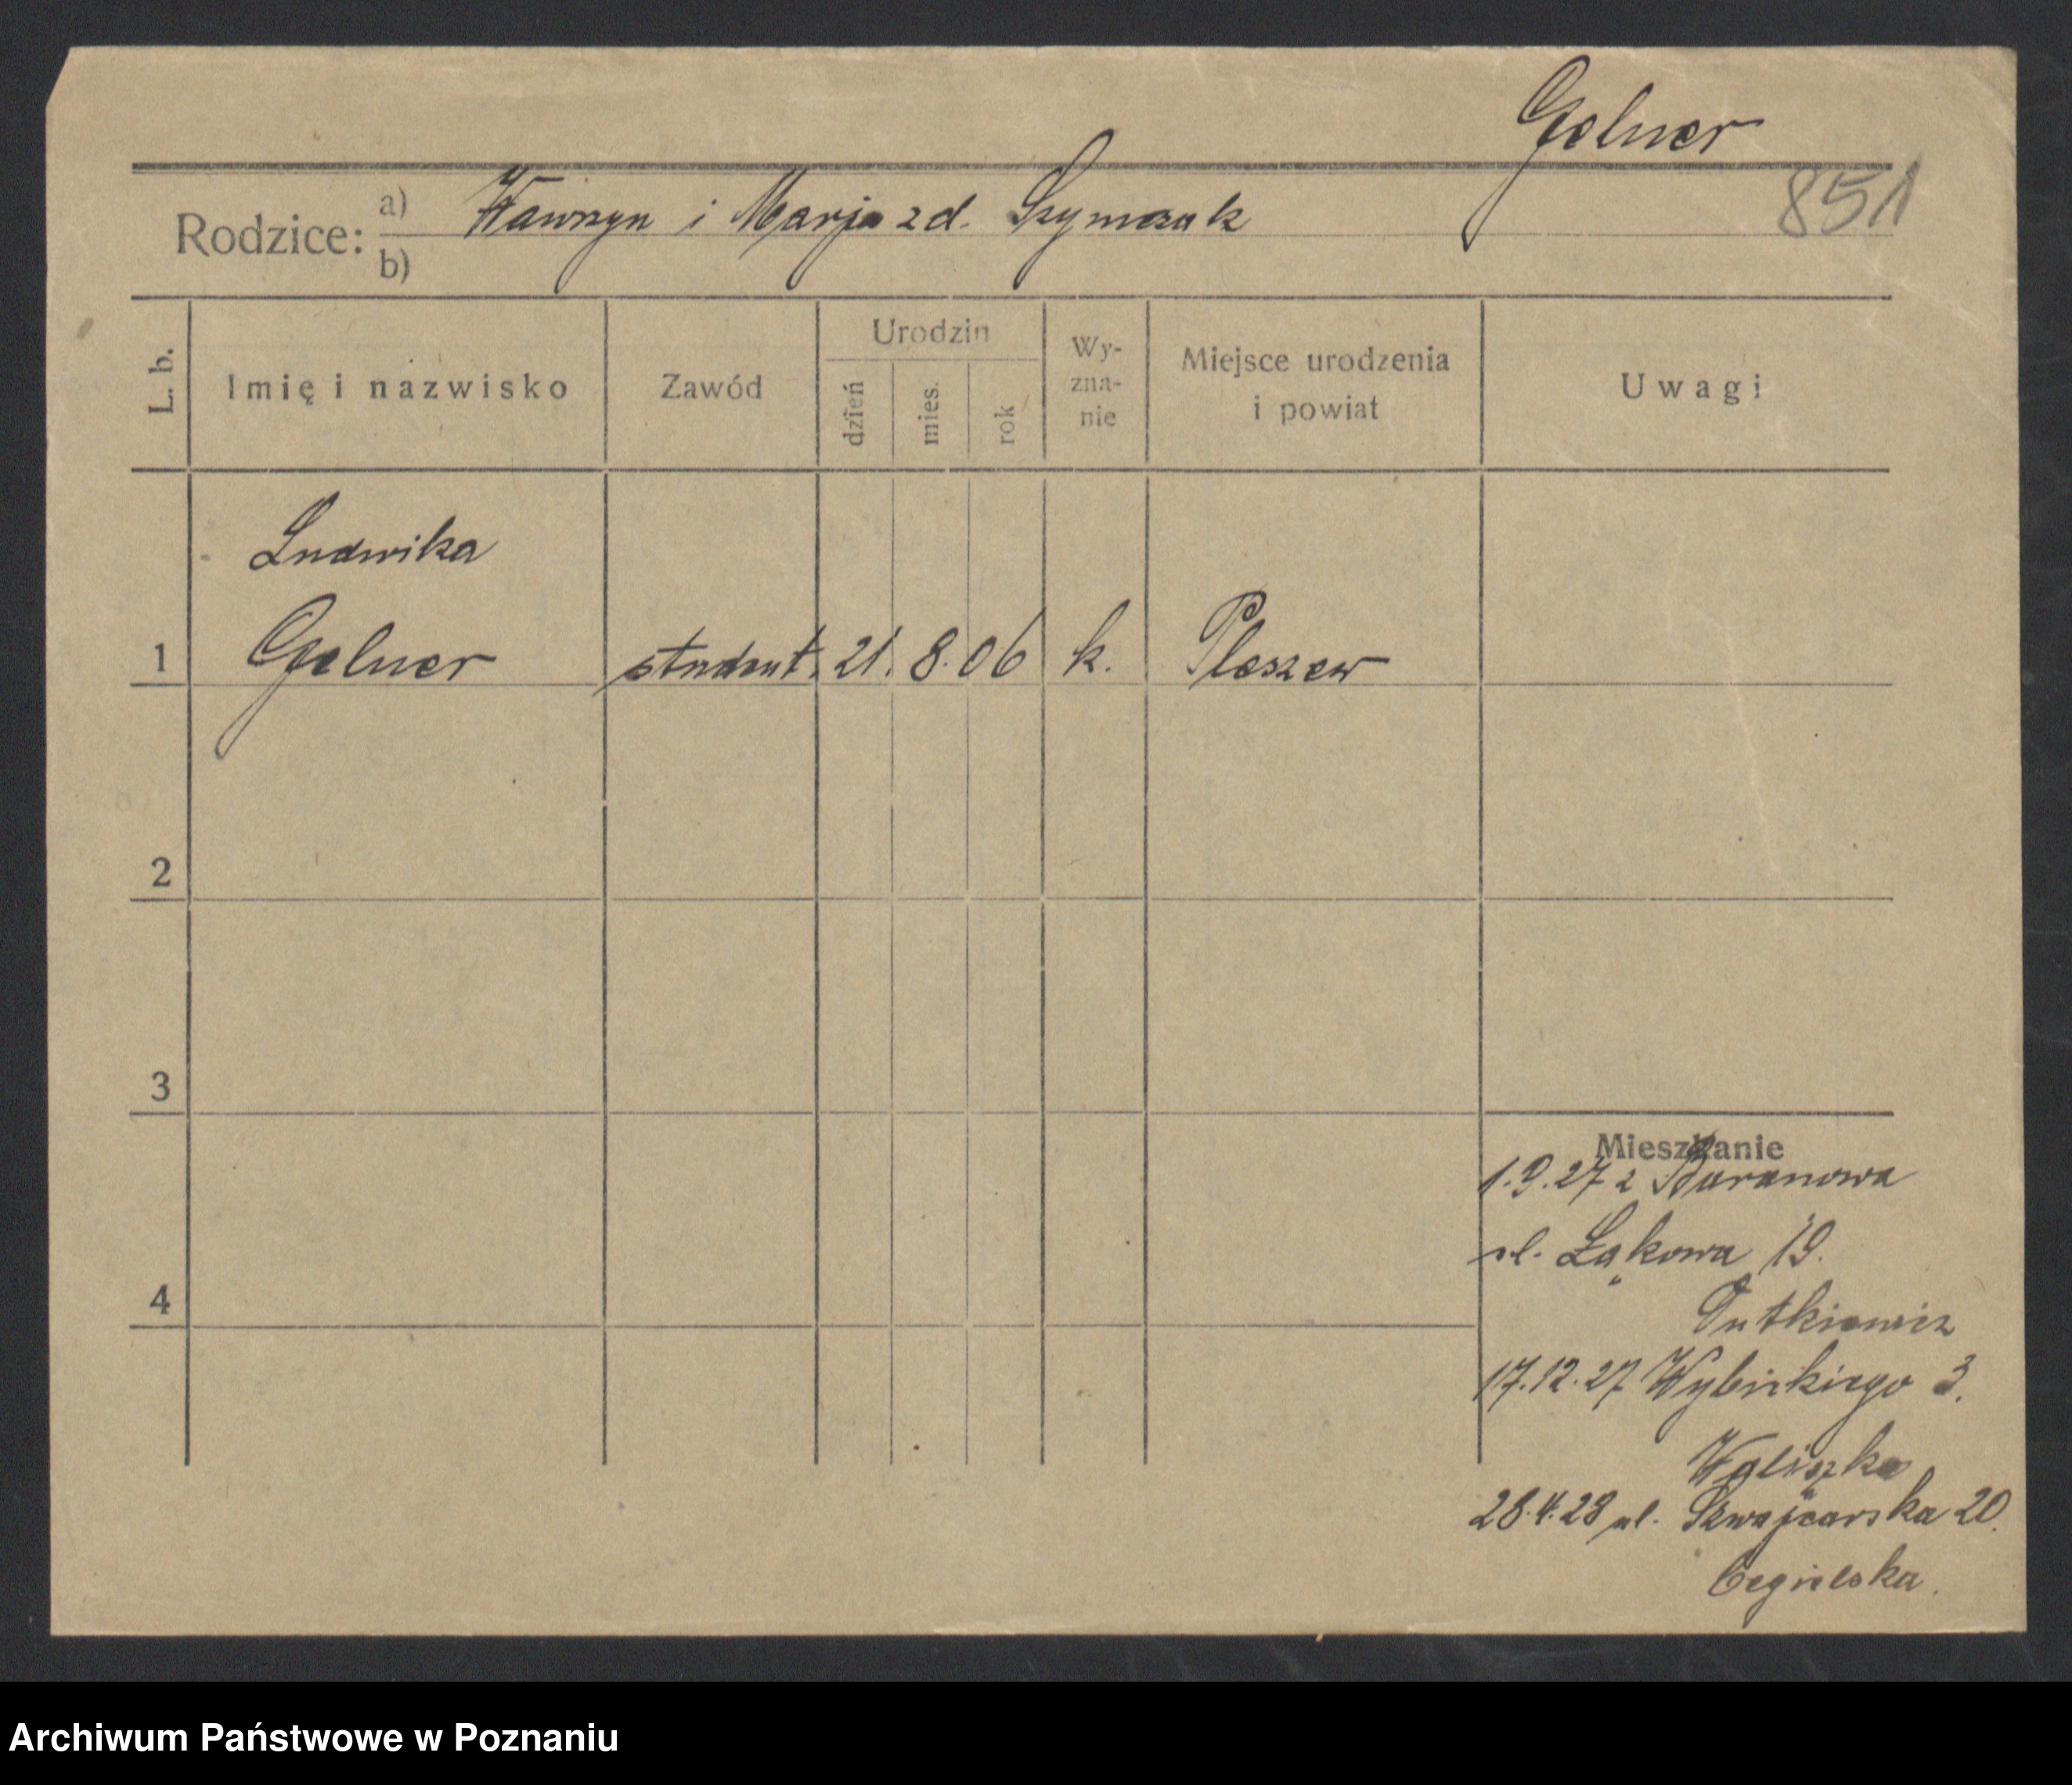 Gelner
851
Rodzice: a) Wawrzyn i Marja zd. Szymczak
b)
L. b.
Imię i nazwisko
Zawód
Urodzin
dzień
mies.
rok
Wy-
zna-
nie
Miejsce urodzenia
i powiat
Uwagi
Ludwika
1 Gelner student. 21. 8. 06 k. Pleszew
2
3
Mieszkanie
1.9.27 z Baranowa
ul. Łąkowa 19.
4
Dutkiewicz
17.12.27 Wybickiego 3.
28.4.28 ul. Szwajcarska 20.
Cegielska.
Archiwum Państwowe w Poznaniu